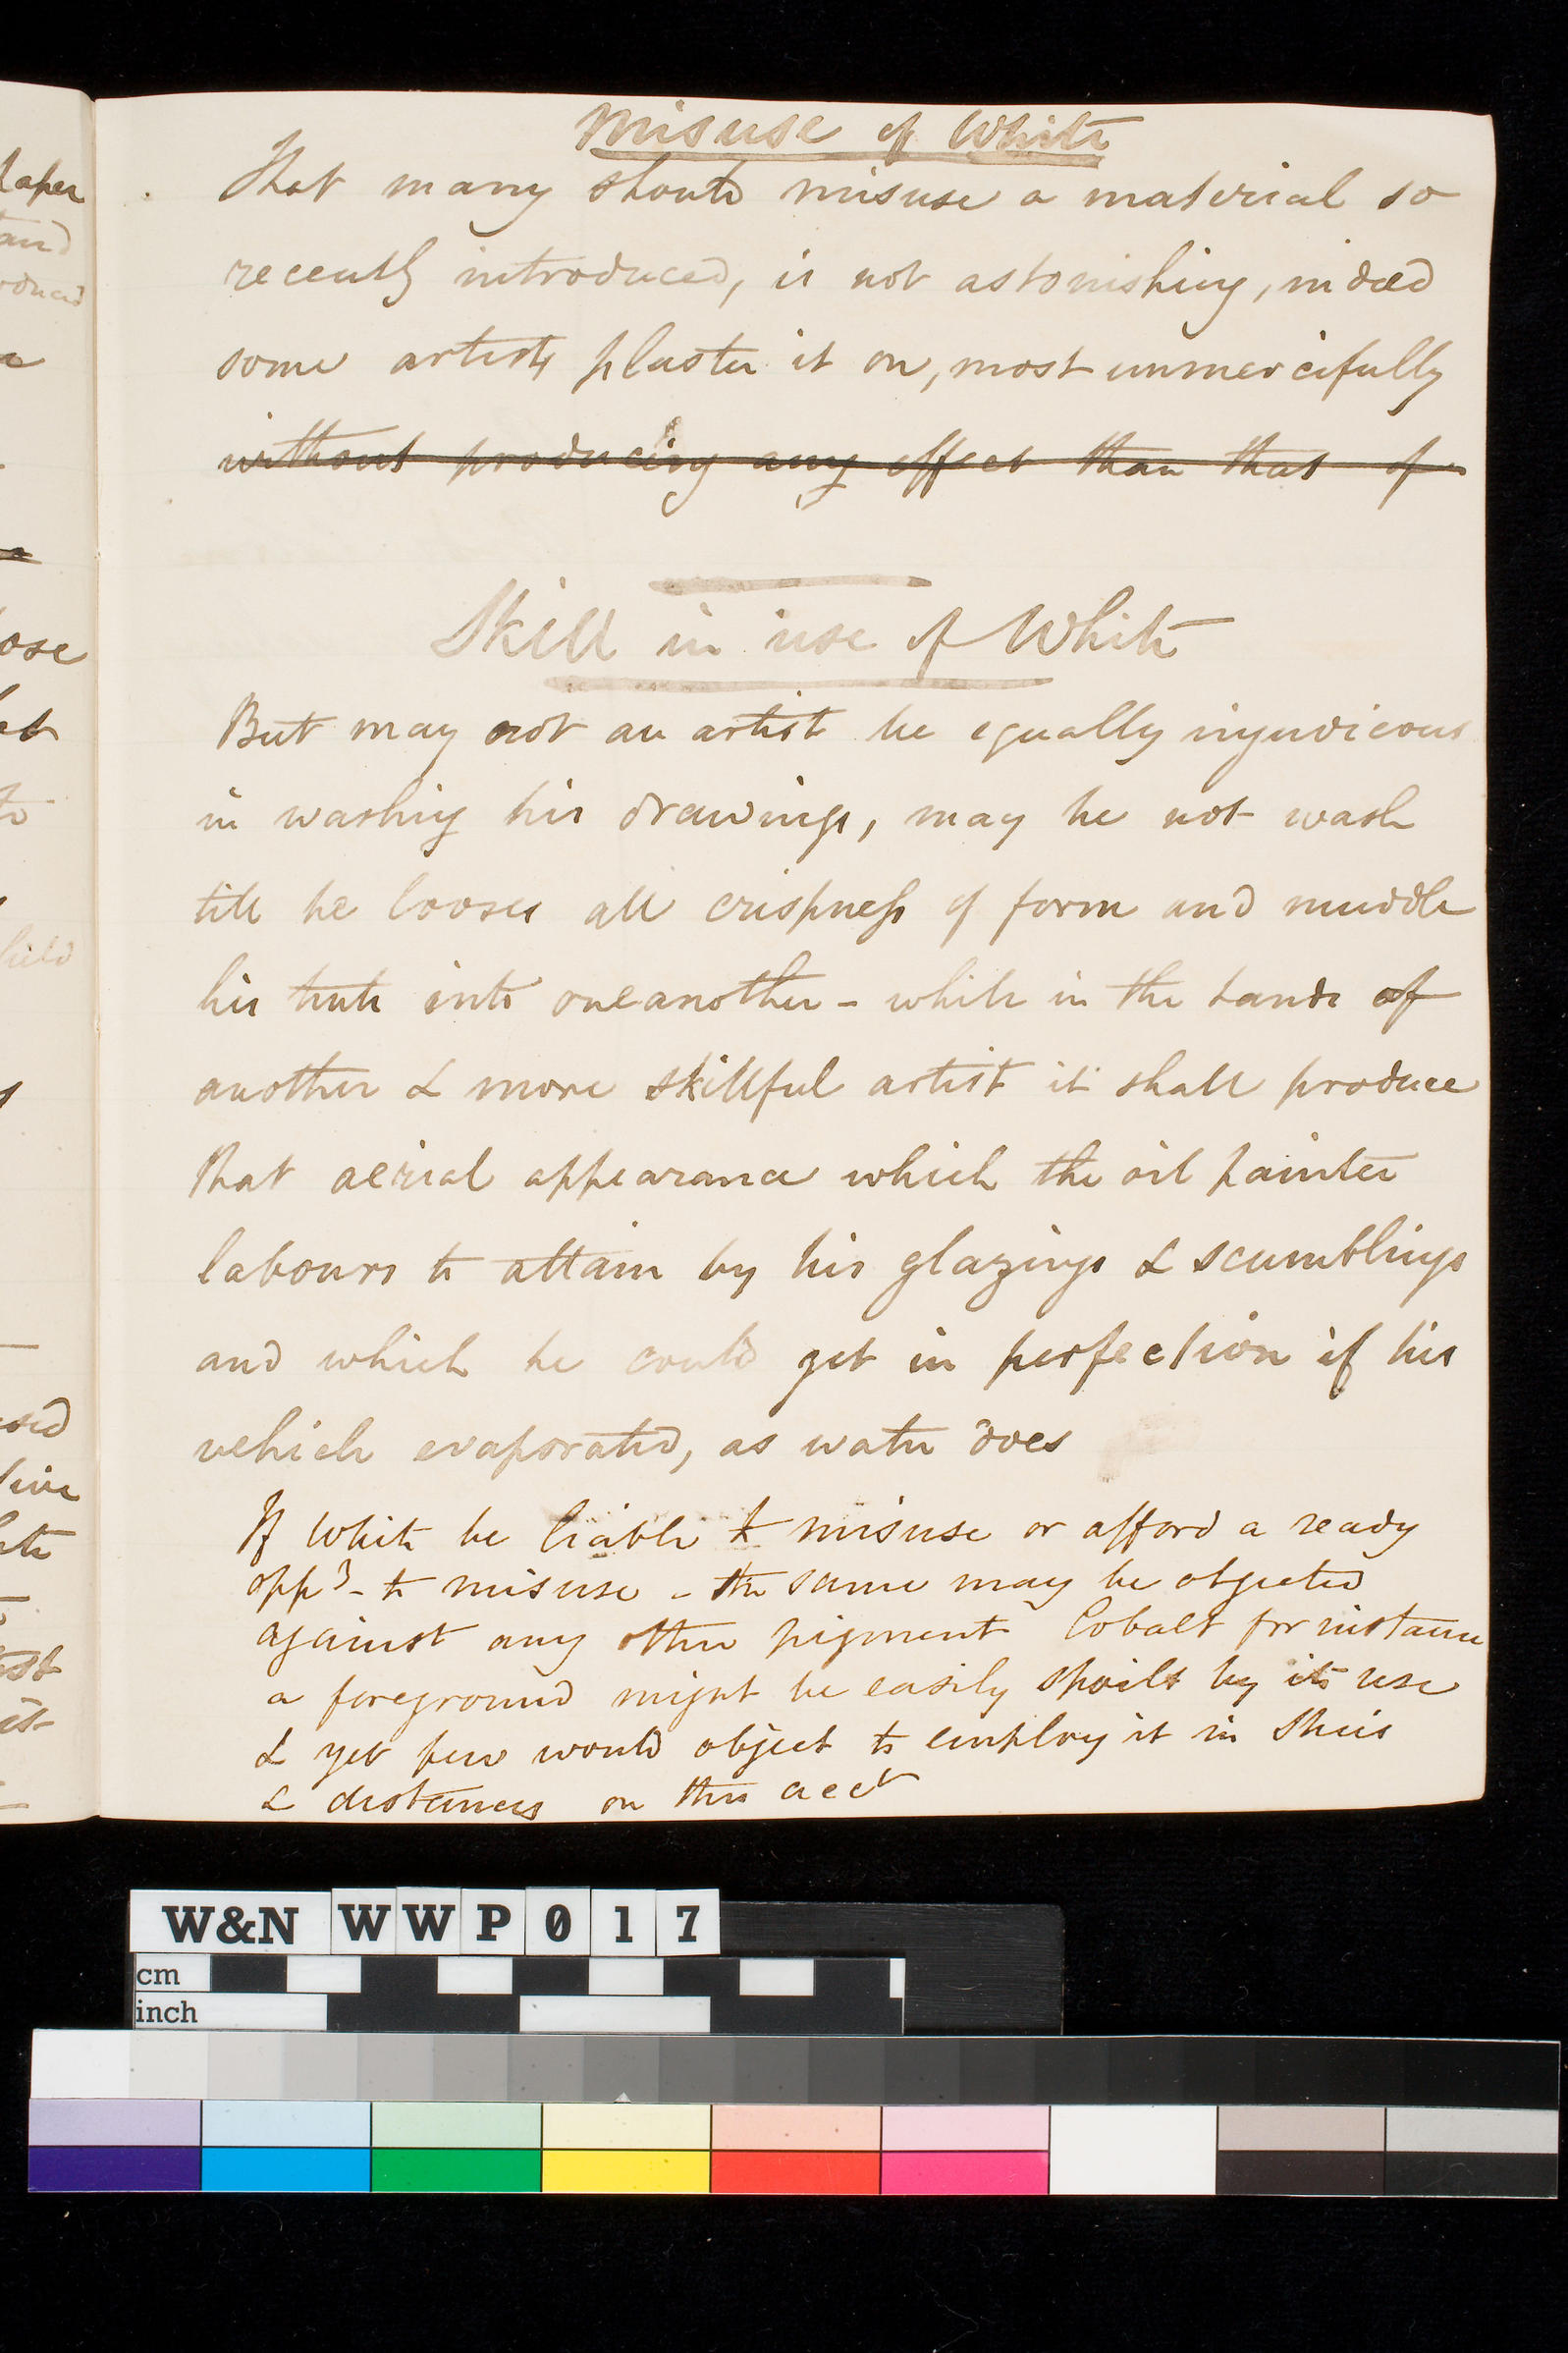 Misuse of White
That many should misuse a material so
recently introduced, is not astonishing, indeed
some artists plaster it on, most unmercifully
without producing any effect than that of
Skill in use of White
But may not an artist be equally injudicious
in washing his drawings, may he not wash
till he looses all crispness of form and muddle
his tints into one another - while in the hands of
another & more skillful artist it shall produce
that aerial appearance which the oil painter
labours to attain by his glazings & scumblings
and which he could get in perfection if his
vehicle evaporated, as water does
If White be liable to misuse or afford a ready
oppy - to misuse - the same may be objected
against any other pigment Cobalt for instance
a foreground might be easily spoilt by its use
& yet few would object to employ it in Skies
& distances on this acct
paper
and
oduced
ose
to
field
W&N WWP017
cm
inch